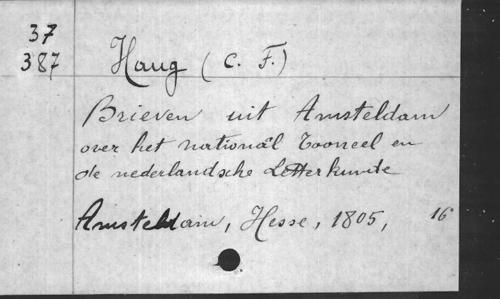 37
387
Haug (C. F.)
Brieven uit Amsteldam
over het nationäl Tooneel en
de nederlandsche Letterkunde
Amsteldam, Hesse, 1805, 16